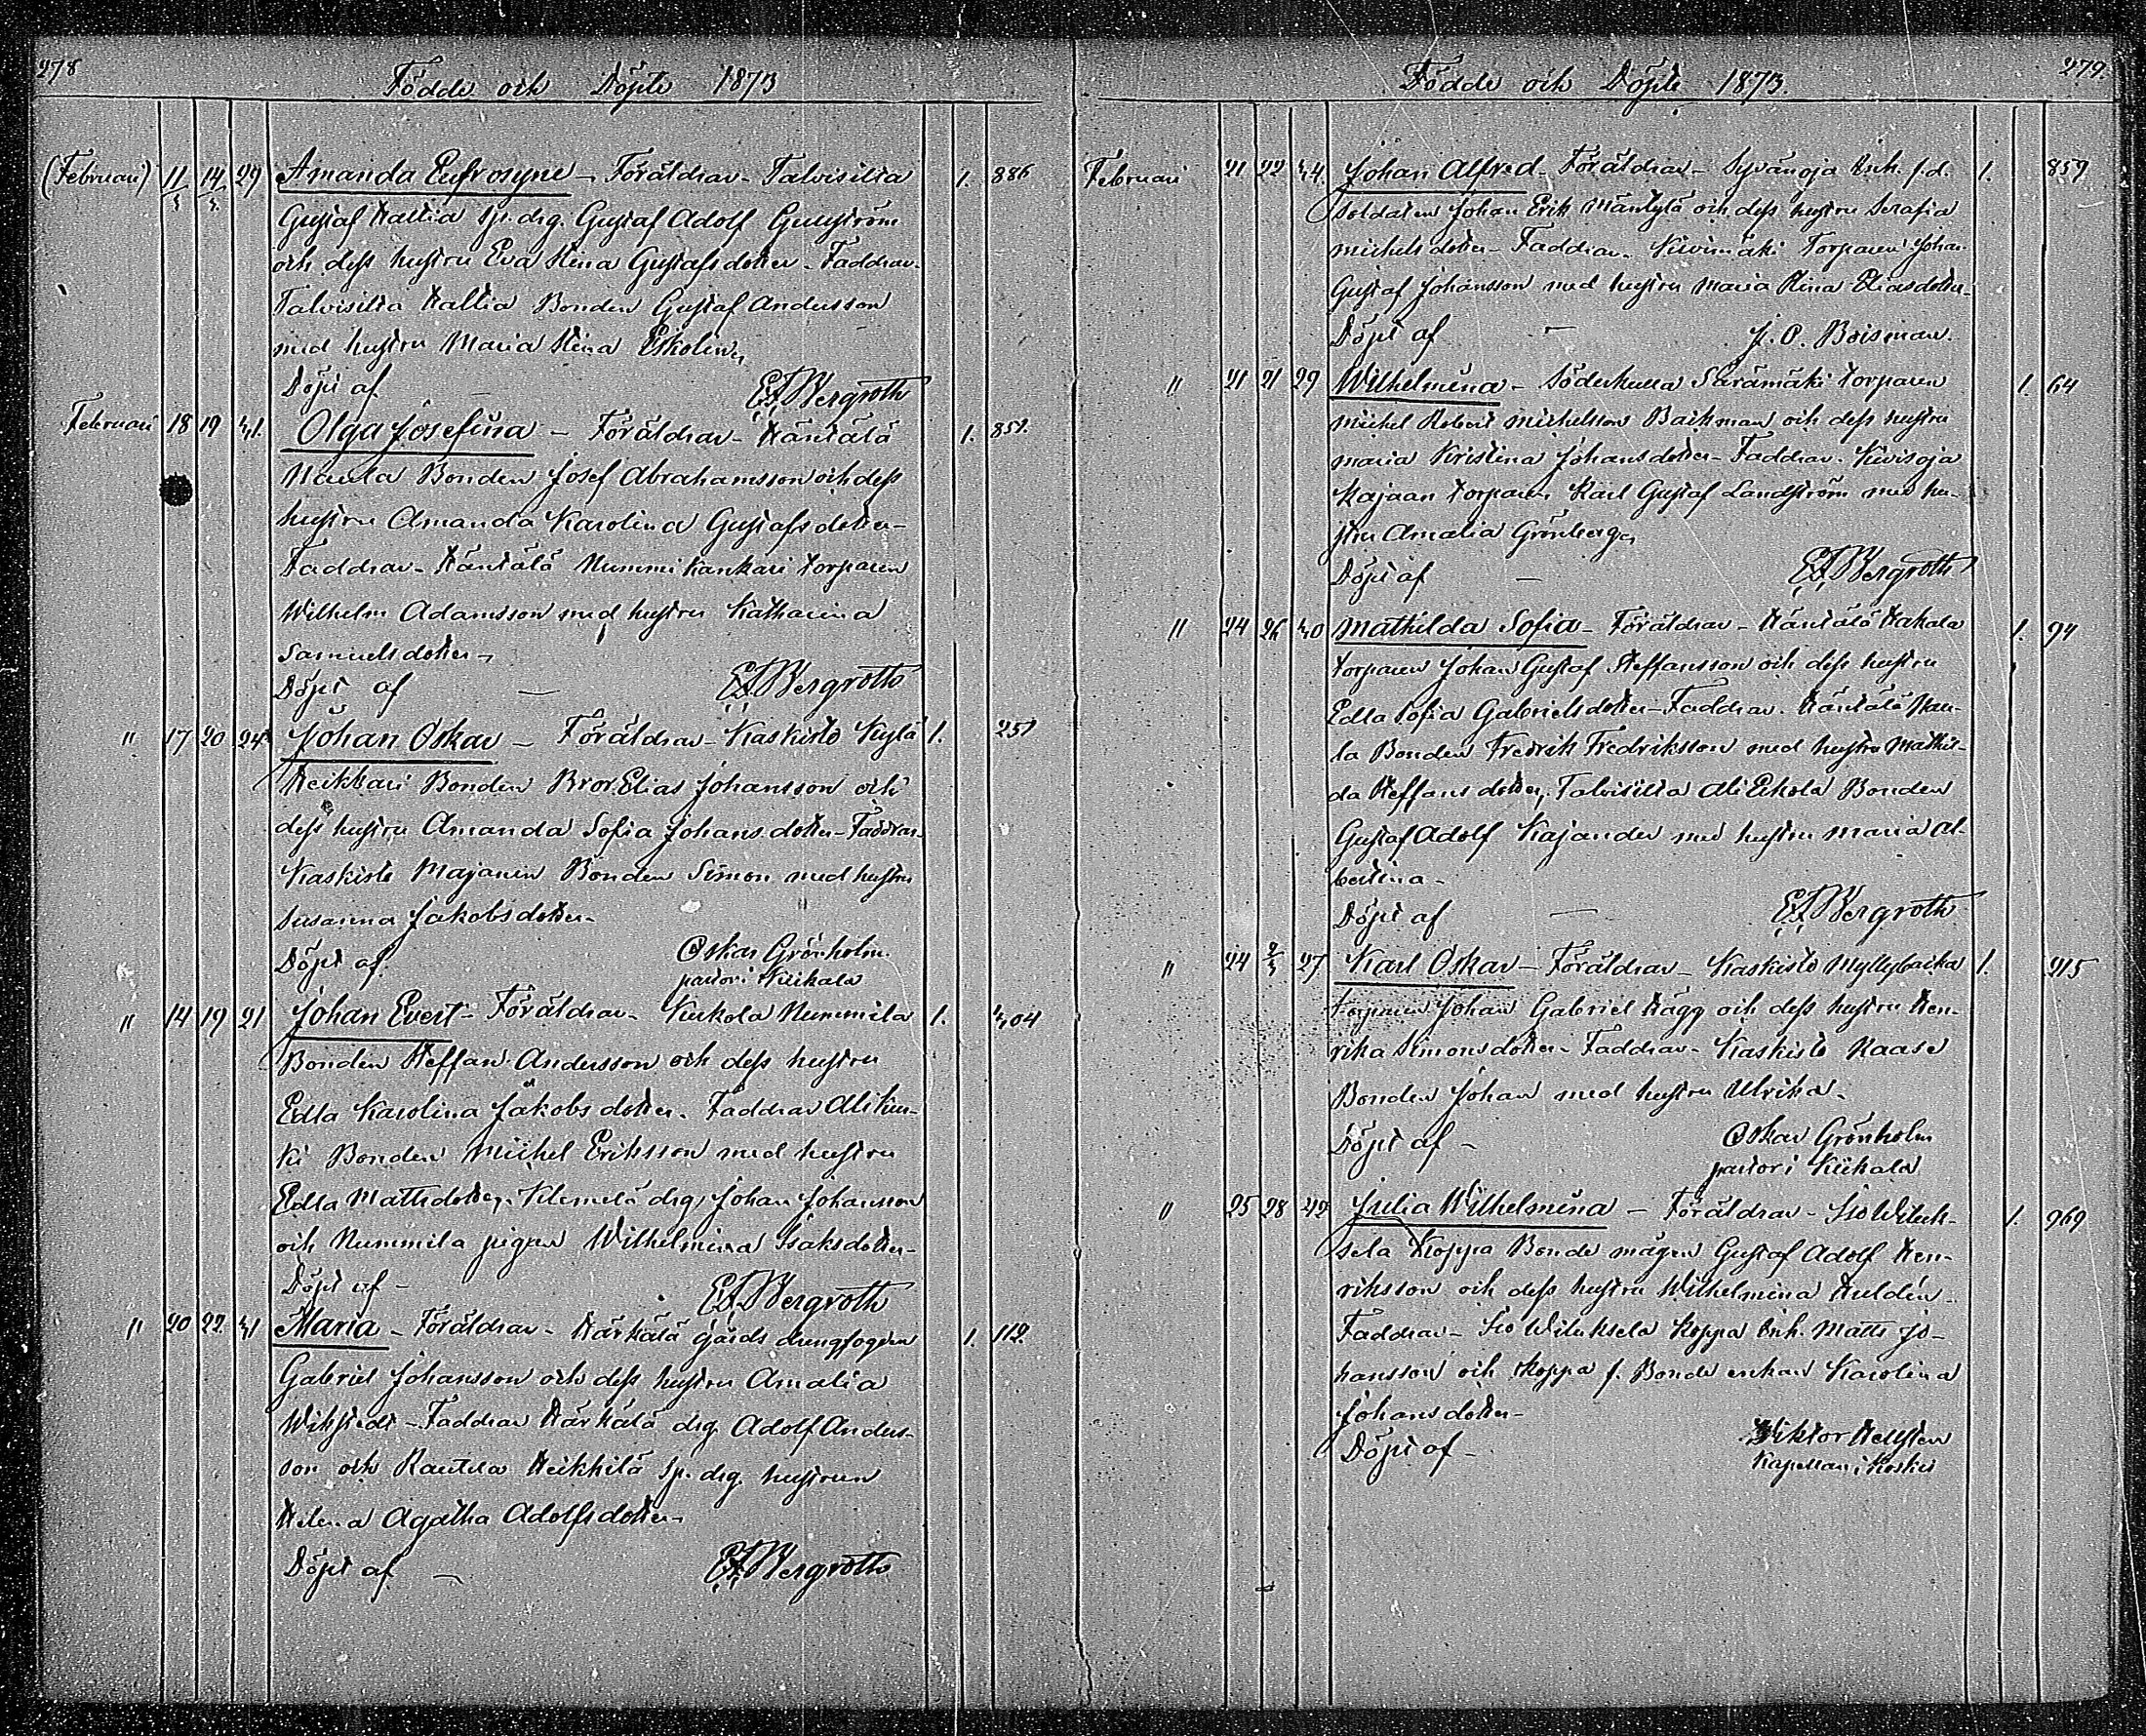 278
Födde och Döpte 1873
(Februari) 11/3 14/3 29 Amanda Eufrosyne - Föräldrar - Talvisilta 1. 886
Gustaf Hattia sp. drg. Gustaf Adolf
och dess hustru Eva Stina Gustafsdotter - Faddrar -
Talvisilta Hattia Bonden Gustaf Andersson
med hustru Maria Stina Eskolin
Döpt af - EF Bergroth
Februari 18 19 31. Olga Josefina - Föräldrar - Häntälä 1. 851.
Naula Bonden Josef Abrahamsson och dess
hustru Amanda Karolina Gustafsdotter -
Faddrar - Häntälä Nummi Kankari torparen
Wilhelm Adamsson med hustru Katharina
Samuelsdotter -
Döpt af - EF Bergroth
" 17 20 24 Johan Oskar - Föräldrar - Kaskisto Kylä 1. 251
Heikkari Bonden Bror Elias Johansson och
dess hustru Amanda Sofia Johansdotter - Faddrar -
Kaskisto Majanen Bonden Simon med hustru
Susanna Jakobsdotter -
Döpt af Oskar Grönholm.
pastor i Kiikala
" 14 19 21 Johan Evert - Föräldrar - Kurkola Nummila 1. 304
Bonden Steffan Andersson och dess hustru
Edla Karolina Jakobsdotter. Faddrar Ali Kur-
ki Bonden Michel Eriksson med hustru
Edla Mattsdotter, drg. Johan Johansson
och Nummila pigan Wilhelmina Isaksdotter -
Döpt af - EF Bergroth
" 20 22 31 Maria - Föräldrar - Härkälä gårds drengfogden 1. 112.
Gabriel Johansson och dess hustru Amalia
Wikstedt - Faddrar Härkälä drg. Adolf Anders-
son och Rautila Heikkilä sp. drg. hustrun
Helena Agatha Adolfsdotter -
Döpt af - EF Bergroth
279.
Födde och Döpte 1873.
Februari 21 22 34 Johan Alfred - Föräldrar - Syvänoja Enk. f.d. 1. 859
soldaten Johan Erik Mäntylä och dess hustru Serafia
Michelsdotter - Faddrar - Kivimäki Torparen Johan
Gustaf Johansson med hustru Maria Stina Eliasdotter -
Döpt af - J. O. Boisman.
" 21 21 29 Wilhelmina - Söderkulla Särämäki torparen 1. 64
Michel Robert Michelsson Backman och dess hustru
Maria Kristina Johansdotter - Faddrar - Kivisoja
Kajaan torparen Karl Gustaf Landström med hu-
stru Amalia Grönberg
Döpt af - EF Bergroth
" 24 26 30 Mathilda Sofia - Föräldrar - Häntälä Hakala 1. 94
torparen Johan Gustaf Steffansson och dess hustru
Edla Sofia Gabrielsdotter - Faddrar. Häntälä Nau-
la Bonden Fredrik Fredriksson med hustru Mathil-
da Steffansdotter, Talvisilta Ali Eskola Bonden
Gustaf Adolf Kajander med hustru Maria Al-
bertina -
Döpt af - EF Bergroth
" 24 2/3 27 Karl Oskar - Föräldrar - Kaskisto Myllypaika 1. 215
torparen Johan Gabriel Hägg och dess hustru Hen-
rika Simonsdotter - Faddrar - Kaskisto Naase
Bonden Johan med hustru Ulrika.
Döpt af - Oskar Grönholm
pastor i Kiikala
" 25 28 42 Julia Wilhelmina - Föräldrar - Iso Wiluk- 1. 969
sela Hoppa Bonde mågen Gustaf Adolf Hen-
riksson och dess hustru Wilhelmina Huldin
Faddrar - Iso Wiluksela Hoppa Enk. Matts Jo-
hansson och Hoppa f. Bonde enkan Karolina
Johansdotter -
Döpt af - Wiktor Hellsten
Kapellan i Koskis